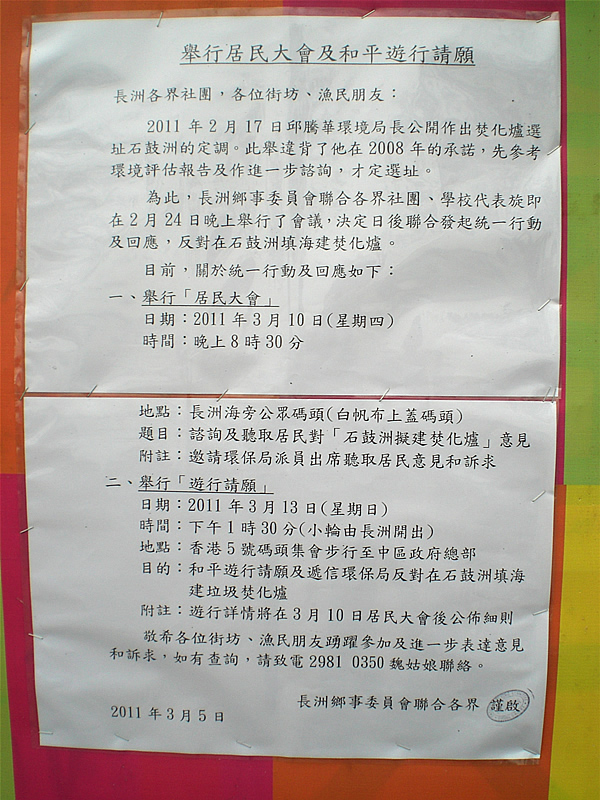 舉行居民大會及和平遊行請願
長洲各界社團，各位街坊、漁民朋友：
2011年2月17日邱騰華環境局長公開作出焚化爐選
址石鼓洲的定調。此舉違背了他在2008年的承諾，先參考
環境評估報告及作進一步諮詢，才定選址。
為此，長洲鄉事委員會聯合各界社團、學校代表旋即
在2月24日晚上舉行了會議，決定日後聯合發起統一行動
及回應，反對在石鼓洲填海建焚化爐。
目前，關於統一行動及回應如下：
一、舉行「居民大會」
日期：2011年3月10日(星期四)
時間：晚上8時30分
地點：長洲海旁公眾碼頭(白帆布上蓋碼頭)
題目：諮詢及聽取居民對「石鼓洲擬建焚化爐」意見
附註：邀請環保局派員出席聽取居民意見和訴求
二、舉行「遊行請願」
日期：2011年3月13日(星期日)
時間：下午1時30分(小輪由長洲開出)
地點：香港5號碼頭集會步行至中區政府總部
目的：和平遊行請願及遞信環保局反對在石鼓洲填海
建垃圾焚化爐
附註：遊行詳情將在3月10日居民大會後公佈細則
敬希各位街坊、漁民朋友踴躍參加及進一步表達意見
和訴求，如有查詢，請致電2981 0350魏姑娘聯絡。
長洲鄉事委員會聯合各界 謹啟
2011年3月5日